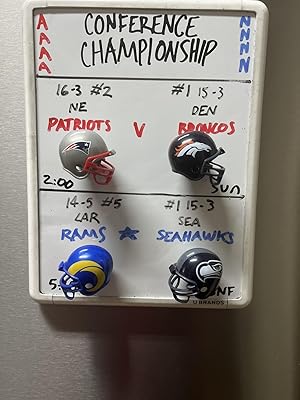 CONFERENCE
CHAMPIONSHIP
A
A
A
A
N
N
N
N
16-3 #2
NE
PATRIOTS
V
#1 15-3
DEN
BRONCOS
2:00
SUN
14-5 #5
LAR
RAMS
#1 15-3
SEA
SEAHAWKS
5:
NF
U BRANDS